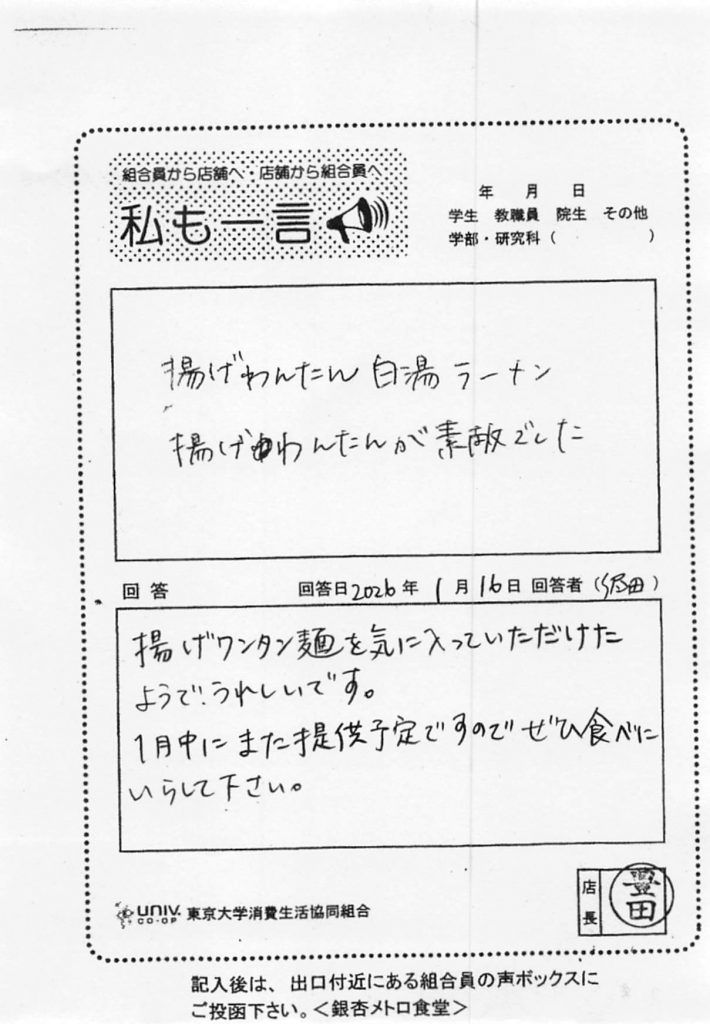 組合員から店舗へ・店舗から組合員へ
私も一言
年 月 日
学生 教職員 院生 その他
学部・研究科 ( )
揚げわんたん 白湯 ラーメン
揚げわんたんが素敵でした
回答
回答日 2026 年 1 月 16 日 回答者 ( 田 )
揚げワンタン麺を気に入っていただけた
ようで、うれしいです。
1月中にまた提供予定ですのでぜひ食べに
いらして下さい。
UNIV. CO-OP 東京大学消費生活協同組合
店長 豊田
記入後は、出口付近にある組合員の声ボックスに
ご投函下さい。＜銀杏メトロ食堂＞